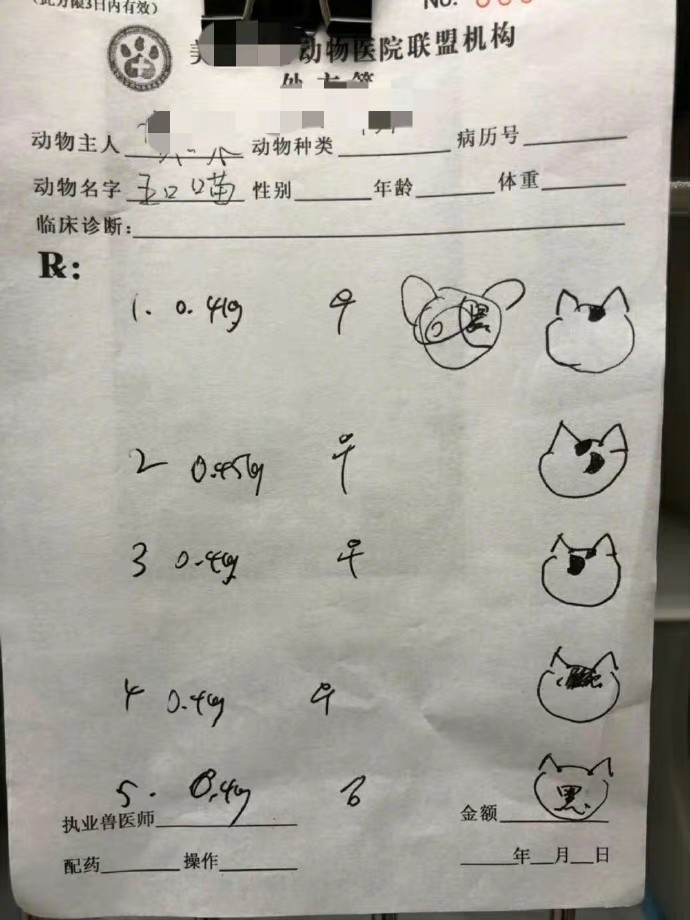 (此方限3日内有效) No.
动物医院联盟机构
处方笺
动物主人 动物种类 病历号
动物名字 五口喵 性别 年龄 体重
临床诊断:
Rx:
1. 0.41g ♀ 黑
2 0.45g ♀
3 0.4g ♀
4 0.4g ♀
5. 0.4g 黑
执业兽医师 金额
配药 操作 年 月 日